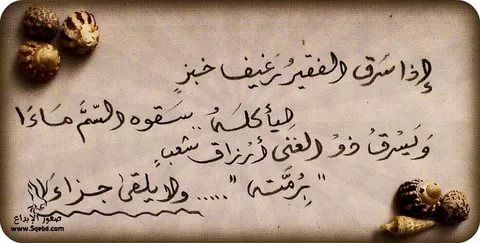 إذا سَرق الفقيرُ رَغيف خبزٍ
ليأكلهُ .. سَقوه السّمَّ مَاءَا
وَيَسْرقُ ذوُ الغِنَى أرْزاق شَعبٍ
"بِرُمّته" ..... ولا يلقىَ جزاءَا
صقور الإبداع
www.5qebd.com